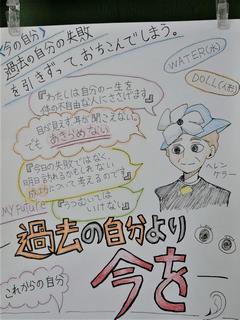 〈今の自分〉
過去の自分の失敗
を引きずって、おちこんでしまう。
WATER(水)
DOLL(人形)
『わたしは自分の一生を
体の不自由な人にささげます。』
目が見えず、耳が聞こえない。
でもあきらめない
『今日の失敗ではなく、
明日訪れるかもしれない
成功について考えるのです。』
MY Future
『うつむいては
いけない』
ヘレン
ケラー
過去の自分より
今を
これからの自分